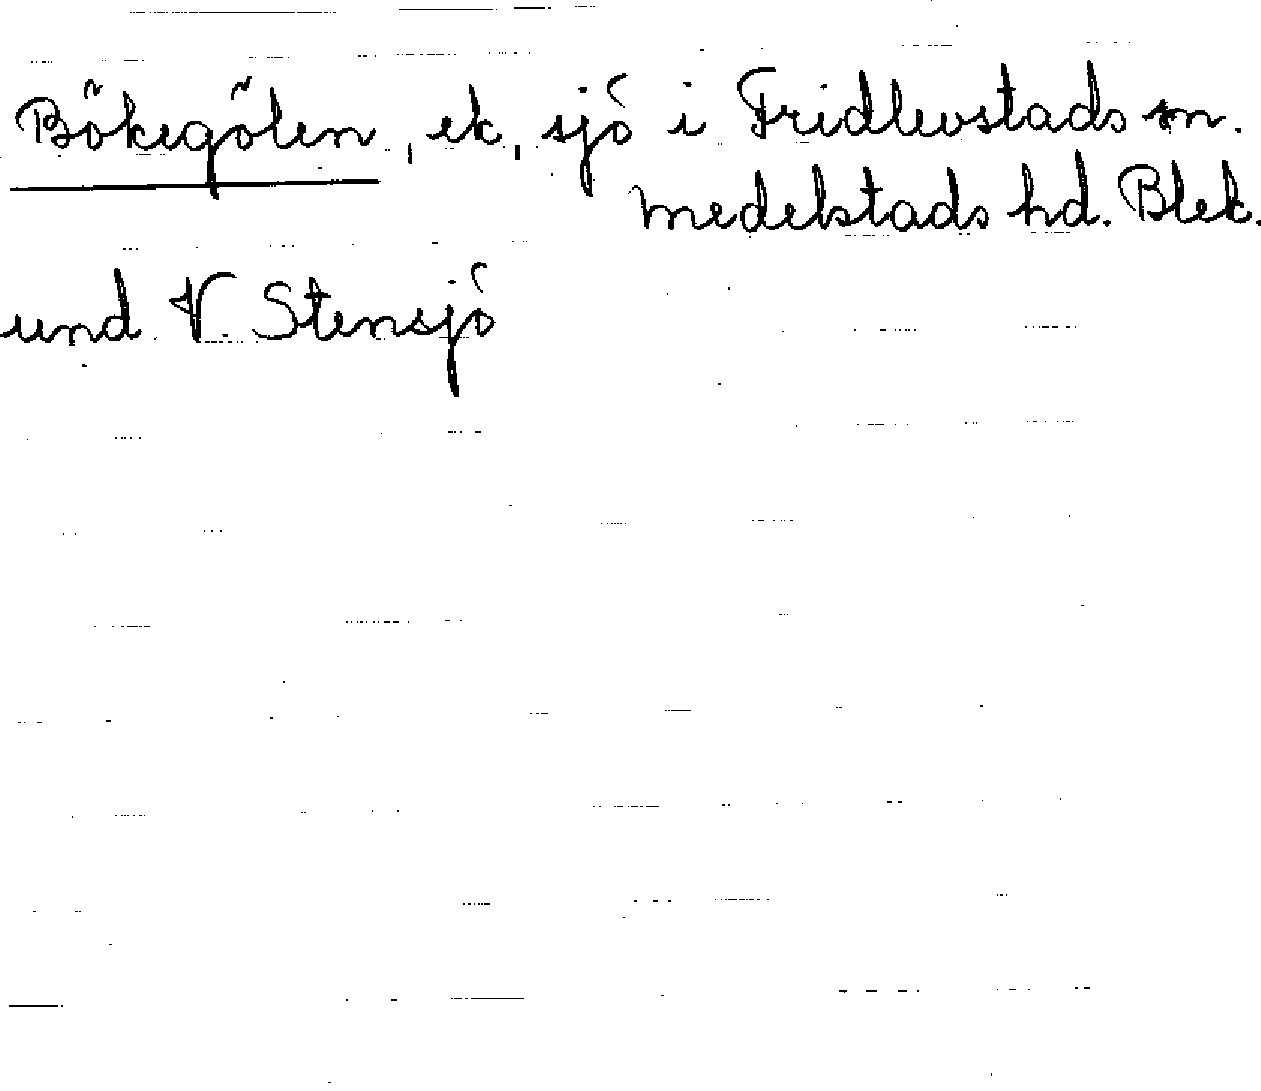 Bökegölen, ek, sjö i Fridlevstads sn.
Medelstads hd. Blek.
und V. Stensjö